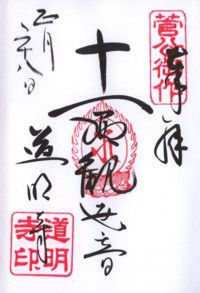 奉拝
菅公御作
十一面観世音
道明寺
道明寺印
正月二十八日